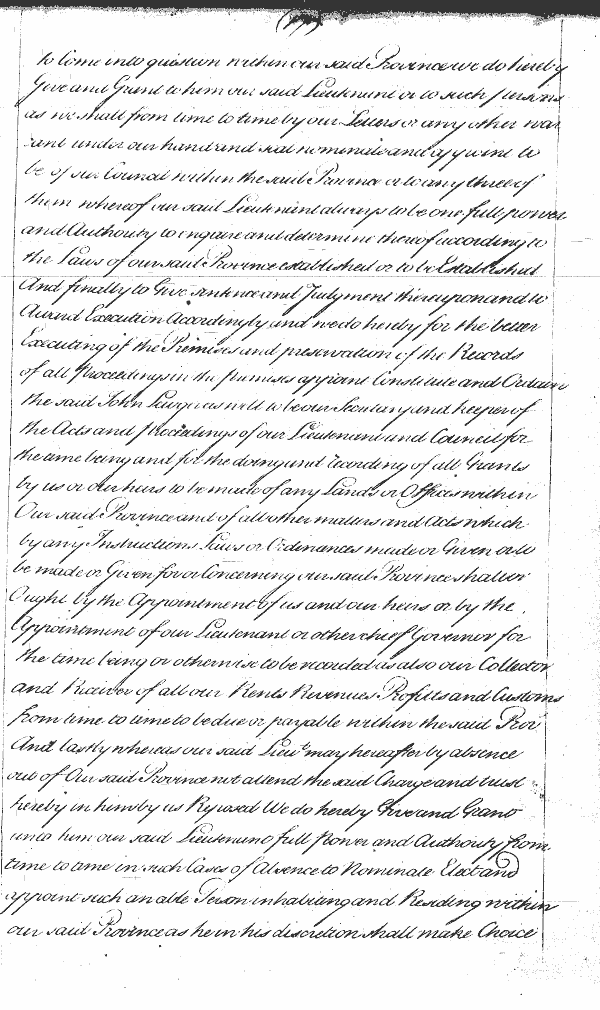 to Come into question within our said Province we do hereby
Give and Grant to him our said Lieutenant or to such persons
as we shall from time to time by our Letters or any other war
rant under our hand and seal nominate and appoint to
be of our Council within the said Province or to any three of
them whereof our said Lieutenant always to be one full power
and Authority to enquire and determine thereof according to
the Laws of our said Province established or to be Established
And finally to Give sentence and Judgment thereupon and to
Award Execution Accordingly and we do hereby for the better
Executing of the Premises and preservation of the Records
of all Proceedings in the premises appoint Constitute and Ordain
the said John as well to be our Secretary and keeper of
the Acts and proceedings of our Lieutenant and Council for
the time being and for the doing and recording of all Grants
by us or our heirs to be made of any Lands or Offices within
Our said Province and of all other matters and Acts which
by any Instructions Laws or Ordinances made or Given or to
be made or Given for or Concerning our said Province shall or
Ought by the Appointment of us and our heirs or by the
Appointment of our Lieutenant or other chief Governor for
the time being or otherwise to be recorded as also our Collector
and Receiver of all our Rents Revenues Profitts and Customs
from time to time to be due or payable within the said Prov
And lastly whereas our said Lieut may hereafter by absence
out of Our said Province not attend the said Charge and trust
hereby in him by us Reposed We do hereby Give and Grant
unto him our said Lieutenant full Power and Authority from
time to time in such Cases of Absence to Nominate Elect and
appoint such an able Person inhabiting and Residing within
our said Province as he in his discretion shall make Choice